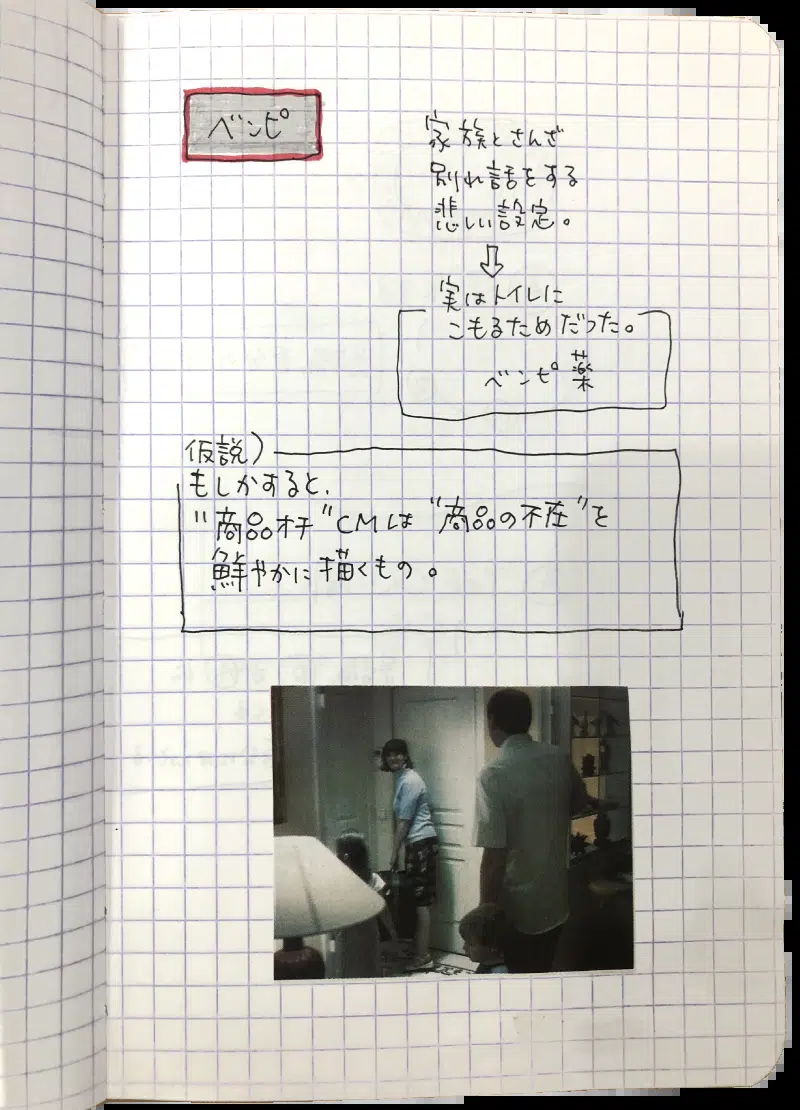 ベンピ
家族とさんざ
別れ話をする
悲しい設定。
⇩
実はトイレに
こもるためだった。
ベンピ薬
仮説）
もしかすると、
"商品オチ"CMは"商品の不在"を
鮮やかに描くもの。